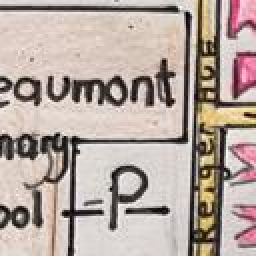 eaumont
mary
ool
P
Reiger AVE